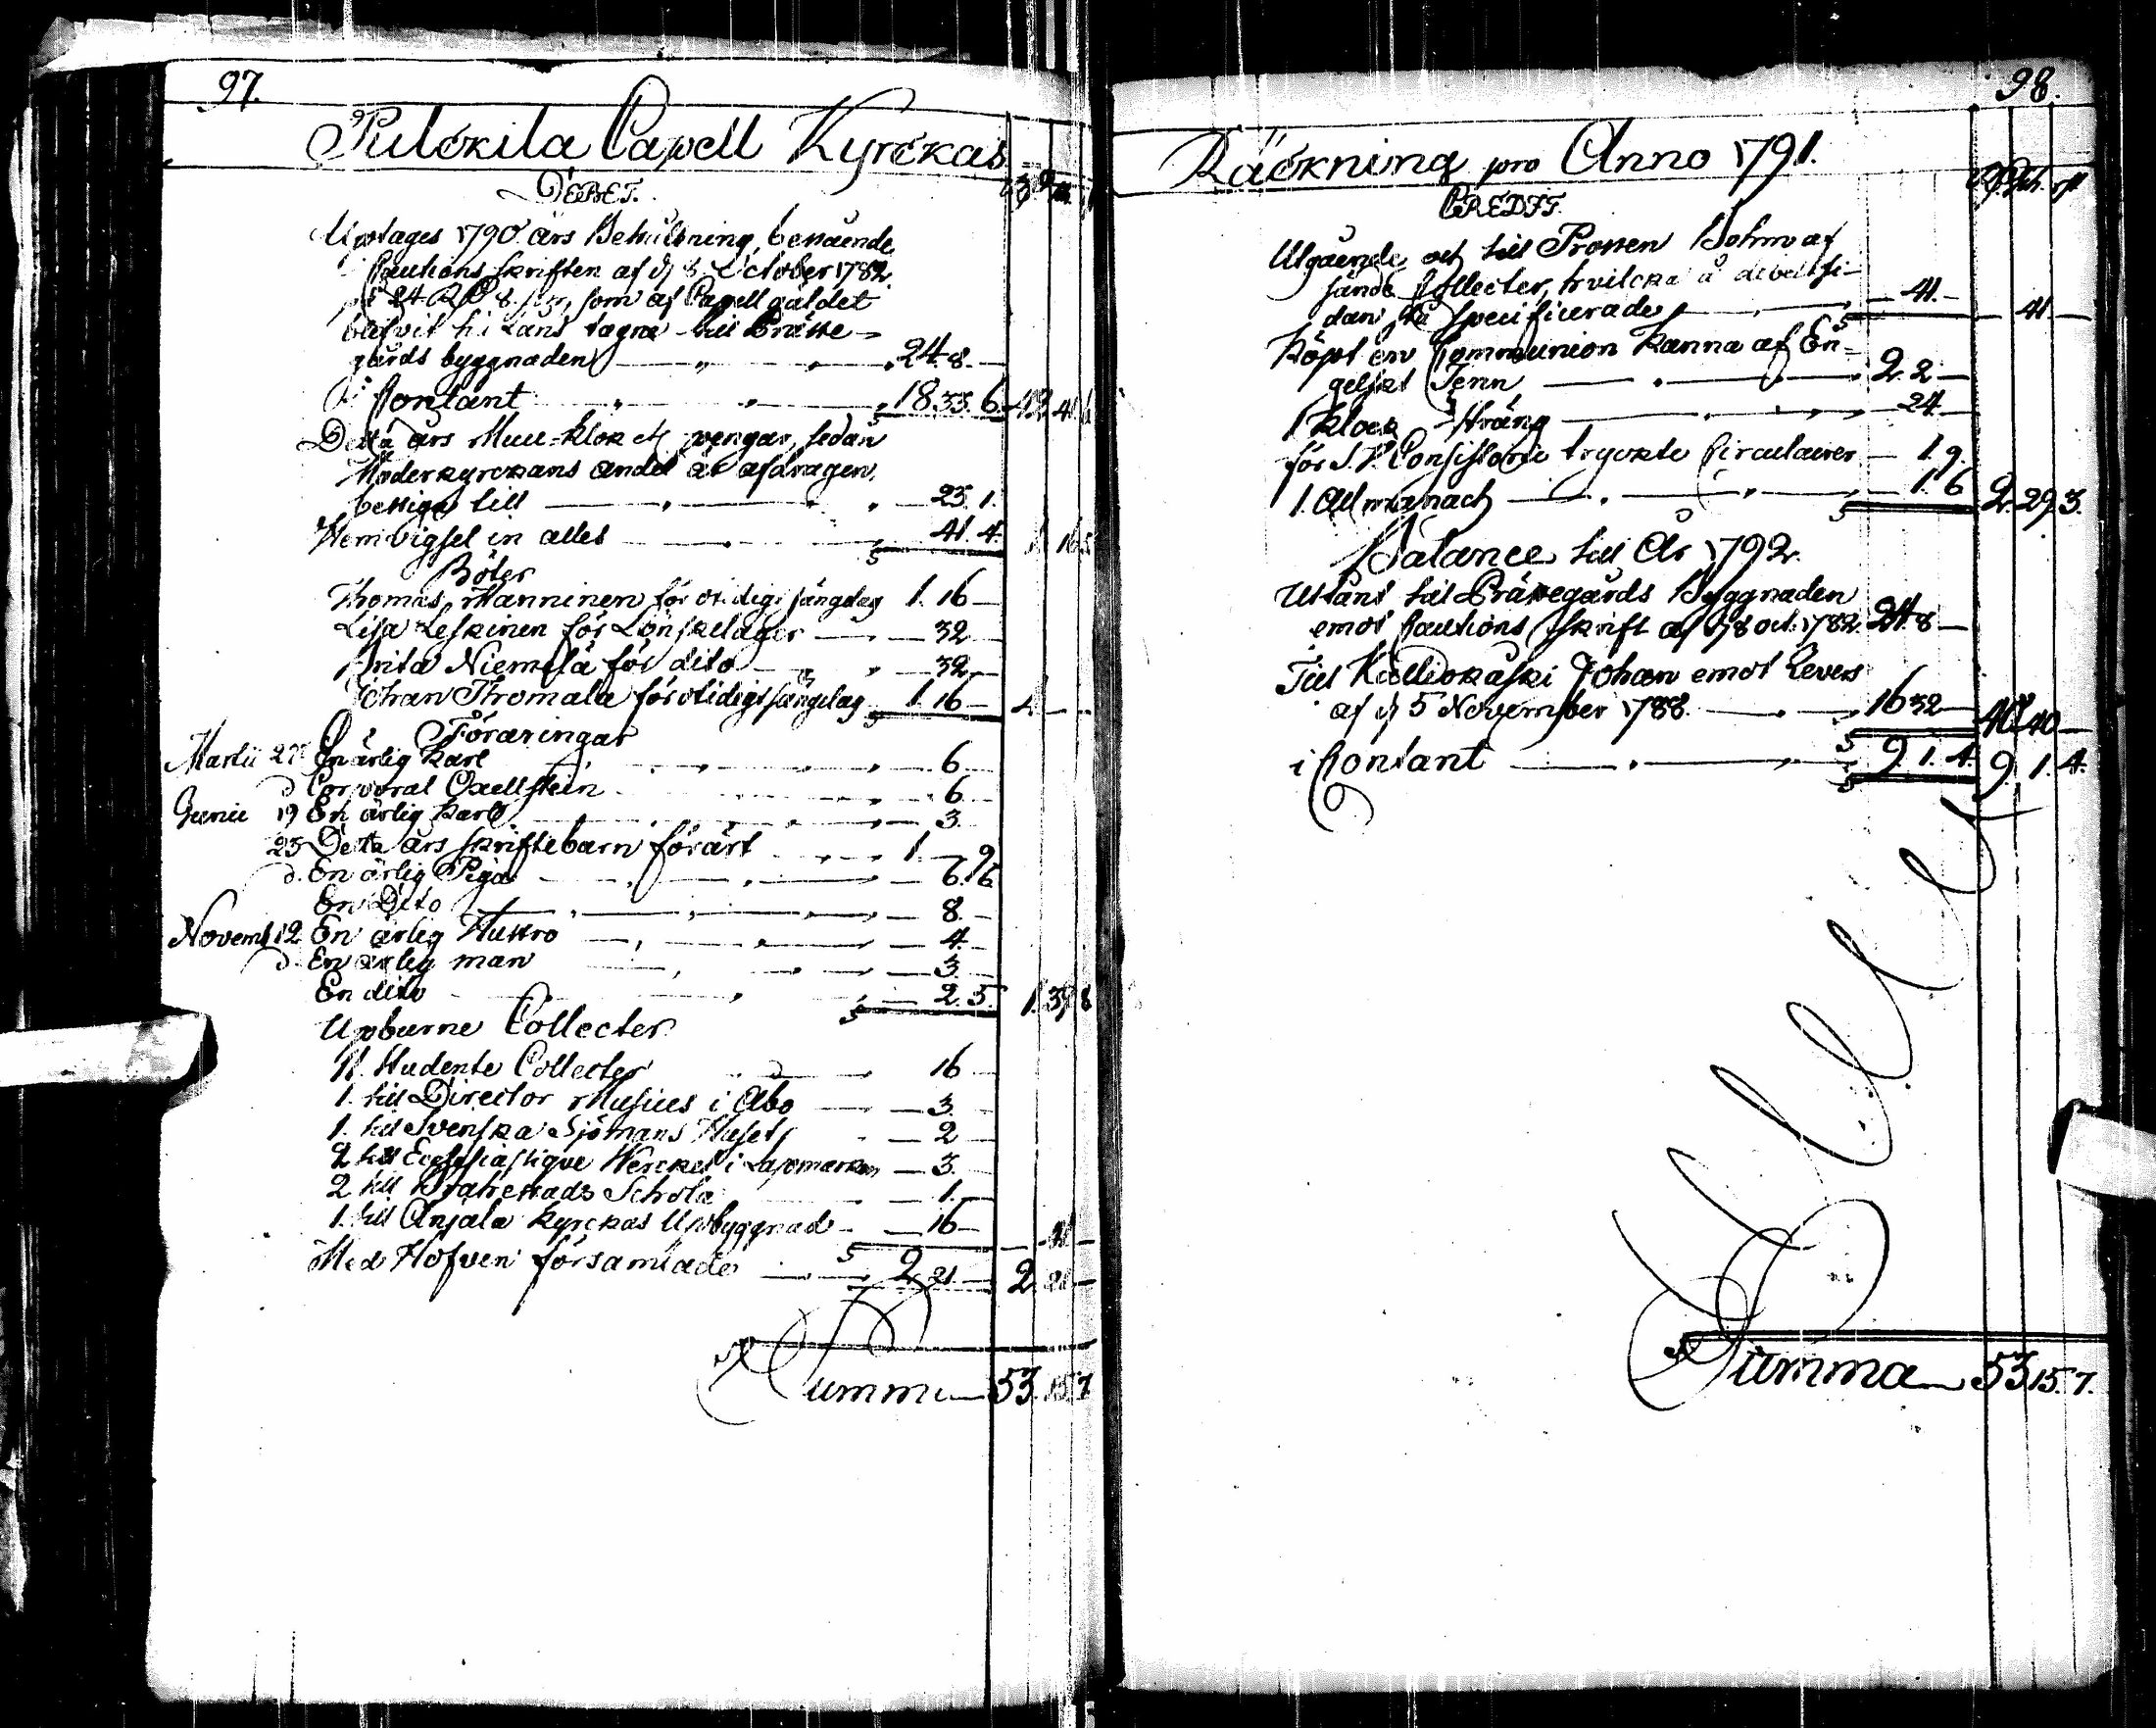 97.
Pulckila Capell Kyrckas
DEBET.
Uptages 1790 års Behållning, bestående
Cautions skriften af d. 8 October 1782
på 24 RD 8 som af Capell galdet
blifvit til Låns tagne till Präste-
gårds byggnaden 24. 8.
i Contant 18. 33. 6. 42. 41. 6
Detta års Mull-Klock och pengar, sedan
Moderkyrckans andel är afdragen,
bestiga till 23. 1.
Hemvigsel in alles 41. 4. 1. 16. 5
Böter
Thomas Manninen för otidigt sängelag 1. 16
Lisa Leskinen för Lönskeläger 32
Brita Niemelä för dito 32
Johan Thomala för otidigt sängelag 1. 16 4
Föräringar
Martii 27 En ärlig Karl 6
d Corporal Oxellstein 6
Junii 19 En ärlig Karl 3.
23 Detta års skriftebarn förärt 1
d. En ärlig Piga 6. 6
En Dito 8.
Novemb 12 En ärlig Hustro 4.
d. En ärlig man 3
En dito 2. 5. 1. 39. 8
Upburne Collecter
11. Studente Collecter 16
1. till Director Musices i Åbo 3.
1. till Svenska Sjömans Huset 2
2 till Ecclesiastique Wercket i Lapmarken 3.
2 till Brahestads Schola 1.
1. till Anjala Kyrckas Upbyggnad 16 41
Med Hofven församlade 2. 21 2. 21
Summa 53. 15. 7
98.
Räckning pro Anno 1791.
CREDIT.
Utgående och till Prosten Bohm af
sände Collecter, hvilcka å debetsi-
dan stå specificerade 41. 41.
Köpt en Communion Kanna af En-
gelskt Tenn 2. 2
1 Klock sträng 24.
för S. V. Consistorii tryckte Circulairer 1. 9.
1. Allmanach 1. 6 2. 29. 3.
Balance till År 1792.
Utlånt till Prästegårds Byggnaden
emot Cautions skrift af d 8 oct. 1782 24. 8
Till Kalliokoski Johan emot Revers
af d 5 November 1788. 16 32 40 40
i Contant 9 1. 4. 9 1. 4.
Summa 53 15. 7.